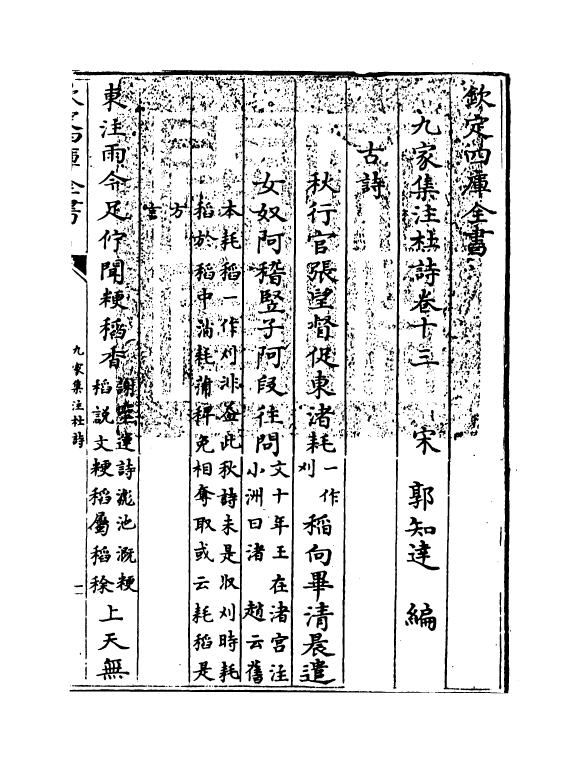 欽定四庫全書
九家集注杜詩卷十三　宋　郭知達　編
古詩
秋行官張望督促東渚耗一作刈稻向畢清晨遣
女奴阿稽豎子阿段往問文十年王在渚宮注小洲曰渚　趙云舊
本耗稻一作刈非蓋此秋詩未是収刈時耗稻於稻中蒲耗蒲稗免相奪取或云耗稻是
方言
東注雨今足佇聞粳稻香謝靈運詩滮池溉粳稻説文粳稻屬稻稌上天無
九家集注杜詩
一